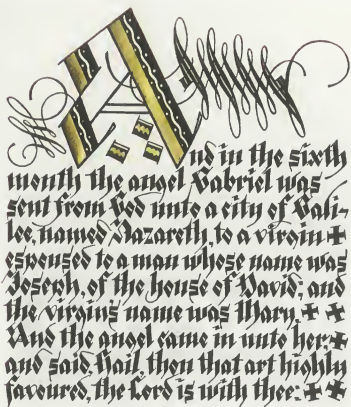 And in the sixth
month the angel Gabriel was
sent from God unto a city of Gali-
lee, named Nazareth, to a virgin ✠
espensed to a man whose name was
Joseph, of the house of David; and
the virgin's name was Mary. ✠ ✠
And the angel came in unto her, ✠
and said, Hail, thou that art highly
favoured, the Lord is with thee: ✠ ✠